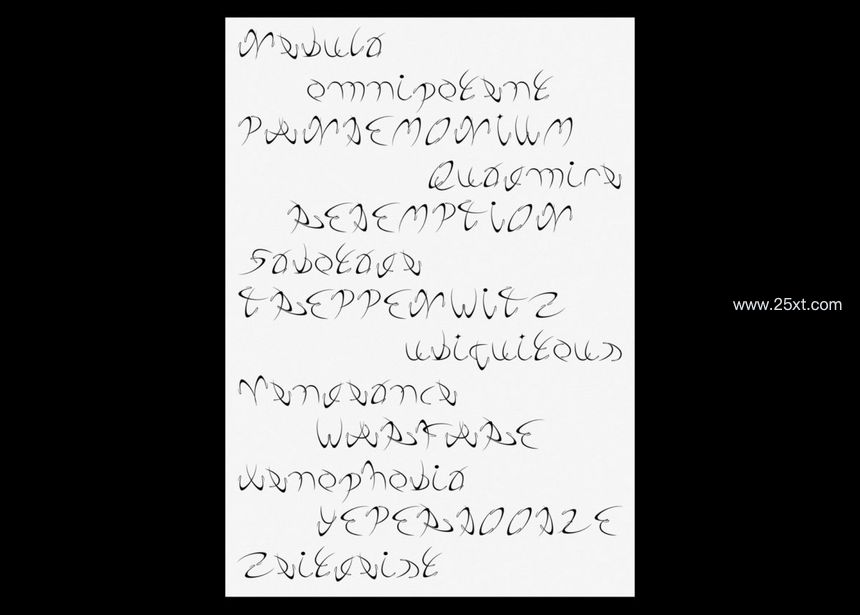 Nebula
omnipotent
PANDEMONIUM
Quagmire
REDEMPTION
Sabotage
TREPPENWITZ
www.25xt.com
ubiquitous
Vengeance
WARFARE
Xenophobia
Zeitgeist